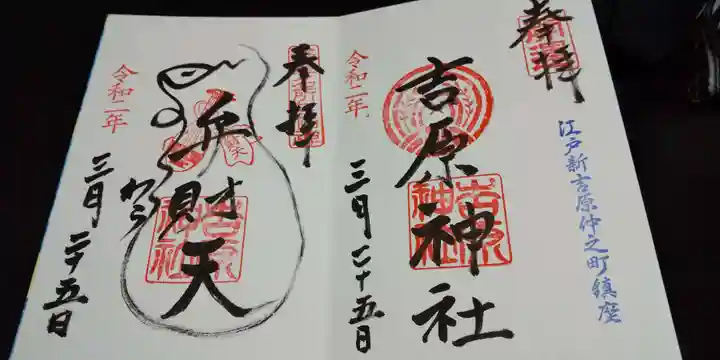 奉拝
江戸新吉原仲之町鎮座
吉原神社
吉原神社
令和二年
三月二十五日
奉拝
弁財天
吉原神社
令和二年
三月二十五日